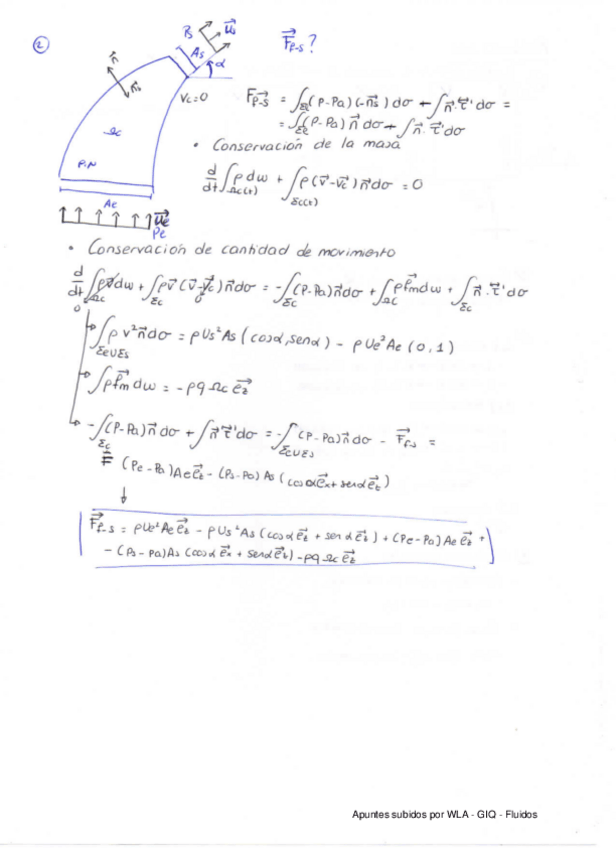 2
F⃗f-s ?
Ps
U⃗s
As
α
n⃗
n⃗s
Vc=0
Ωc
P.N
Ac
U⃗e
Pe
F⃗f-s = ∫Σc (P-Pa)(-n⃗s) dσ + ∫ n⃗·τ⃗' dσ =
= ∫Σc (P-Pa) n⃗ dσ + ∫ n⃗·τ⃗' dσ
• Conservación de la masa
d/dt ∫Ωc(t) ρ dω + ∫Σc(t) ρ (v⃗-v⃗c) n⃗ dσ = 0
• Conservación de cantidad de movimiento
d/dt ∫Ωc ρv⃗ dω + ∫Σc ρv⃗ (v⃗-v⃗c) n⃗ dσ = -∫Σc (P-Pa) n⃗ dσ + ∫Ωc ρf⃗m dω + ∫Σc n⃗·τ⃗' dσ
0 0
∫ΣeUΣs ρ v² n⃗ dσ = ρ Us² As (cosα, senα) - ρ Ue² Ae (0,1)
∫ρf⃗m dω = -ρg Ωc e⃗z
-∫Σc (P-Pa) n⃗ dσ + ∫ n⃗ τ⃗' dσ = -∫ΣeUΣs (P-Pa) n⃗ dσ - F⃗f-s =
= (Pe-Pa) Ae e⃗z - (Ps-Pa) As (cosα e⃗x + senα e⃗z)
F⃗f-s = ρUe² Ae e⃗z - ρUs² As (cosα e⃗x + senα e⃗z) + (Pe-Pa) Ae e⃗z +
- (Ps-Pa) As (cosα e⃗x + senα e⃗z) - ρg Ωc e⃗z
Apuntes subidos por WLA - GIQ - Fluidos